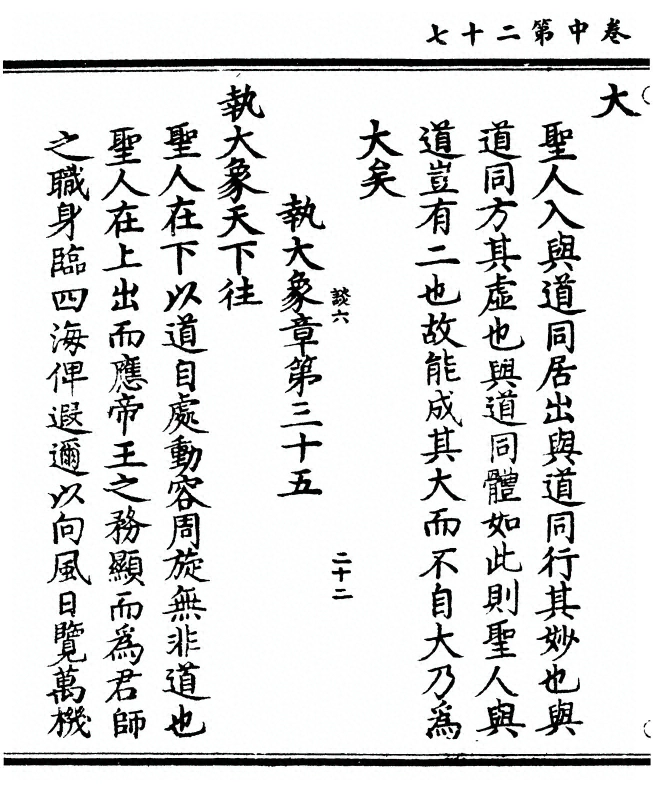 卷中第二十七
大
聖人入與道同居出與道同行其妙也與
道同方其虛也與道同體如此則聖人與
道豈有二也故能成其大而不自大乃爲
大矣
談六
二十二
執大象章第三十五
執大象天下往
聖人在下以道自處動容周旋無非道也
聖人在上出而應帝王之務顯而爲君師
之職身臨四海俾遐邇以向風日覽萬機